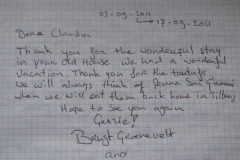 03-09-2011
17-09-2011
Dear Claudia
Thank you for the wonderful stay
in your old House we had a wonderful
vacation. Thank you for the
we will always think of Penna San Giovanni
when we will eat them back home in Tilburg.
Hope to see you again
Grazie!
Groenevelt
and